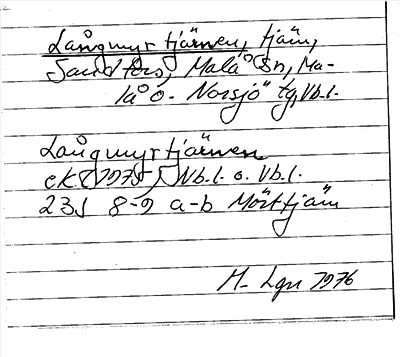 Långmyrtjärnen, tjärn,
Sandfors, Malå sn, Ma-
lå o. Norsjö tg, Vb.l.
Långmyrtjärnen
ek (1975), Nb.l. o. Vb.l.
23J 8-9 a-b Mörttjärn
M. Lgn 1976